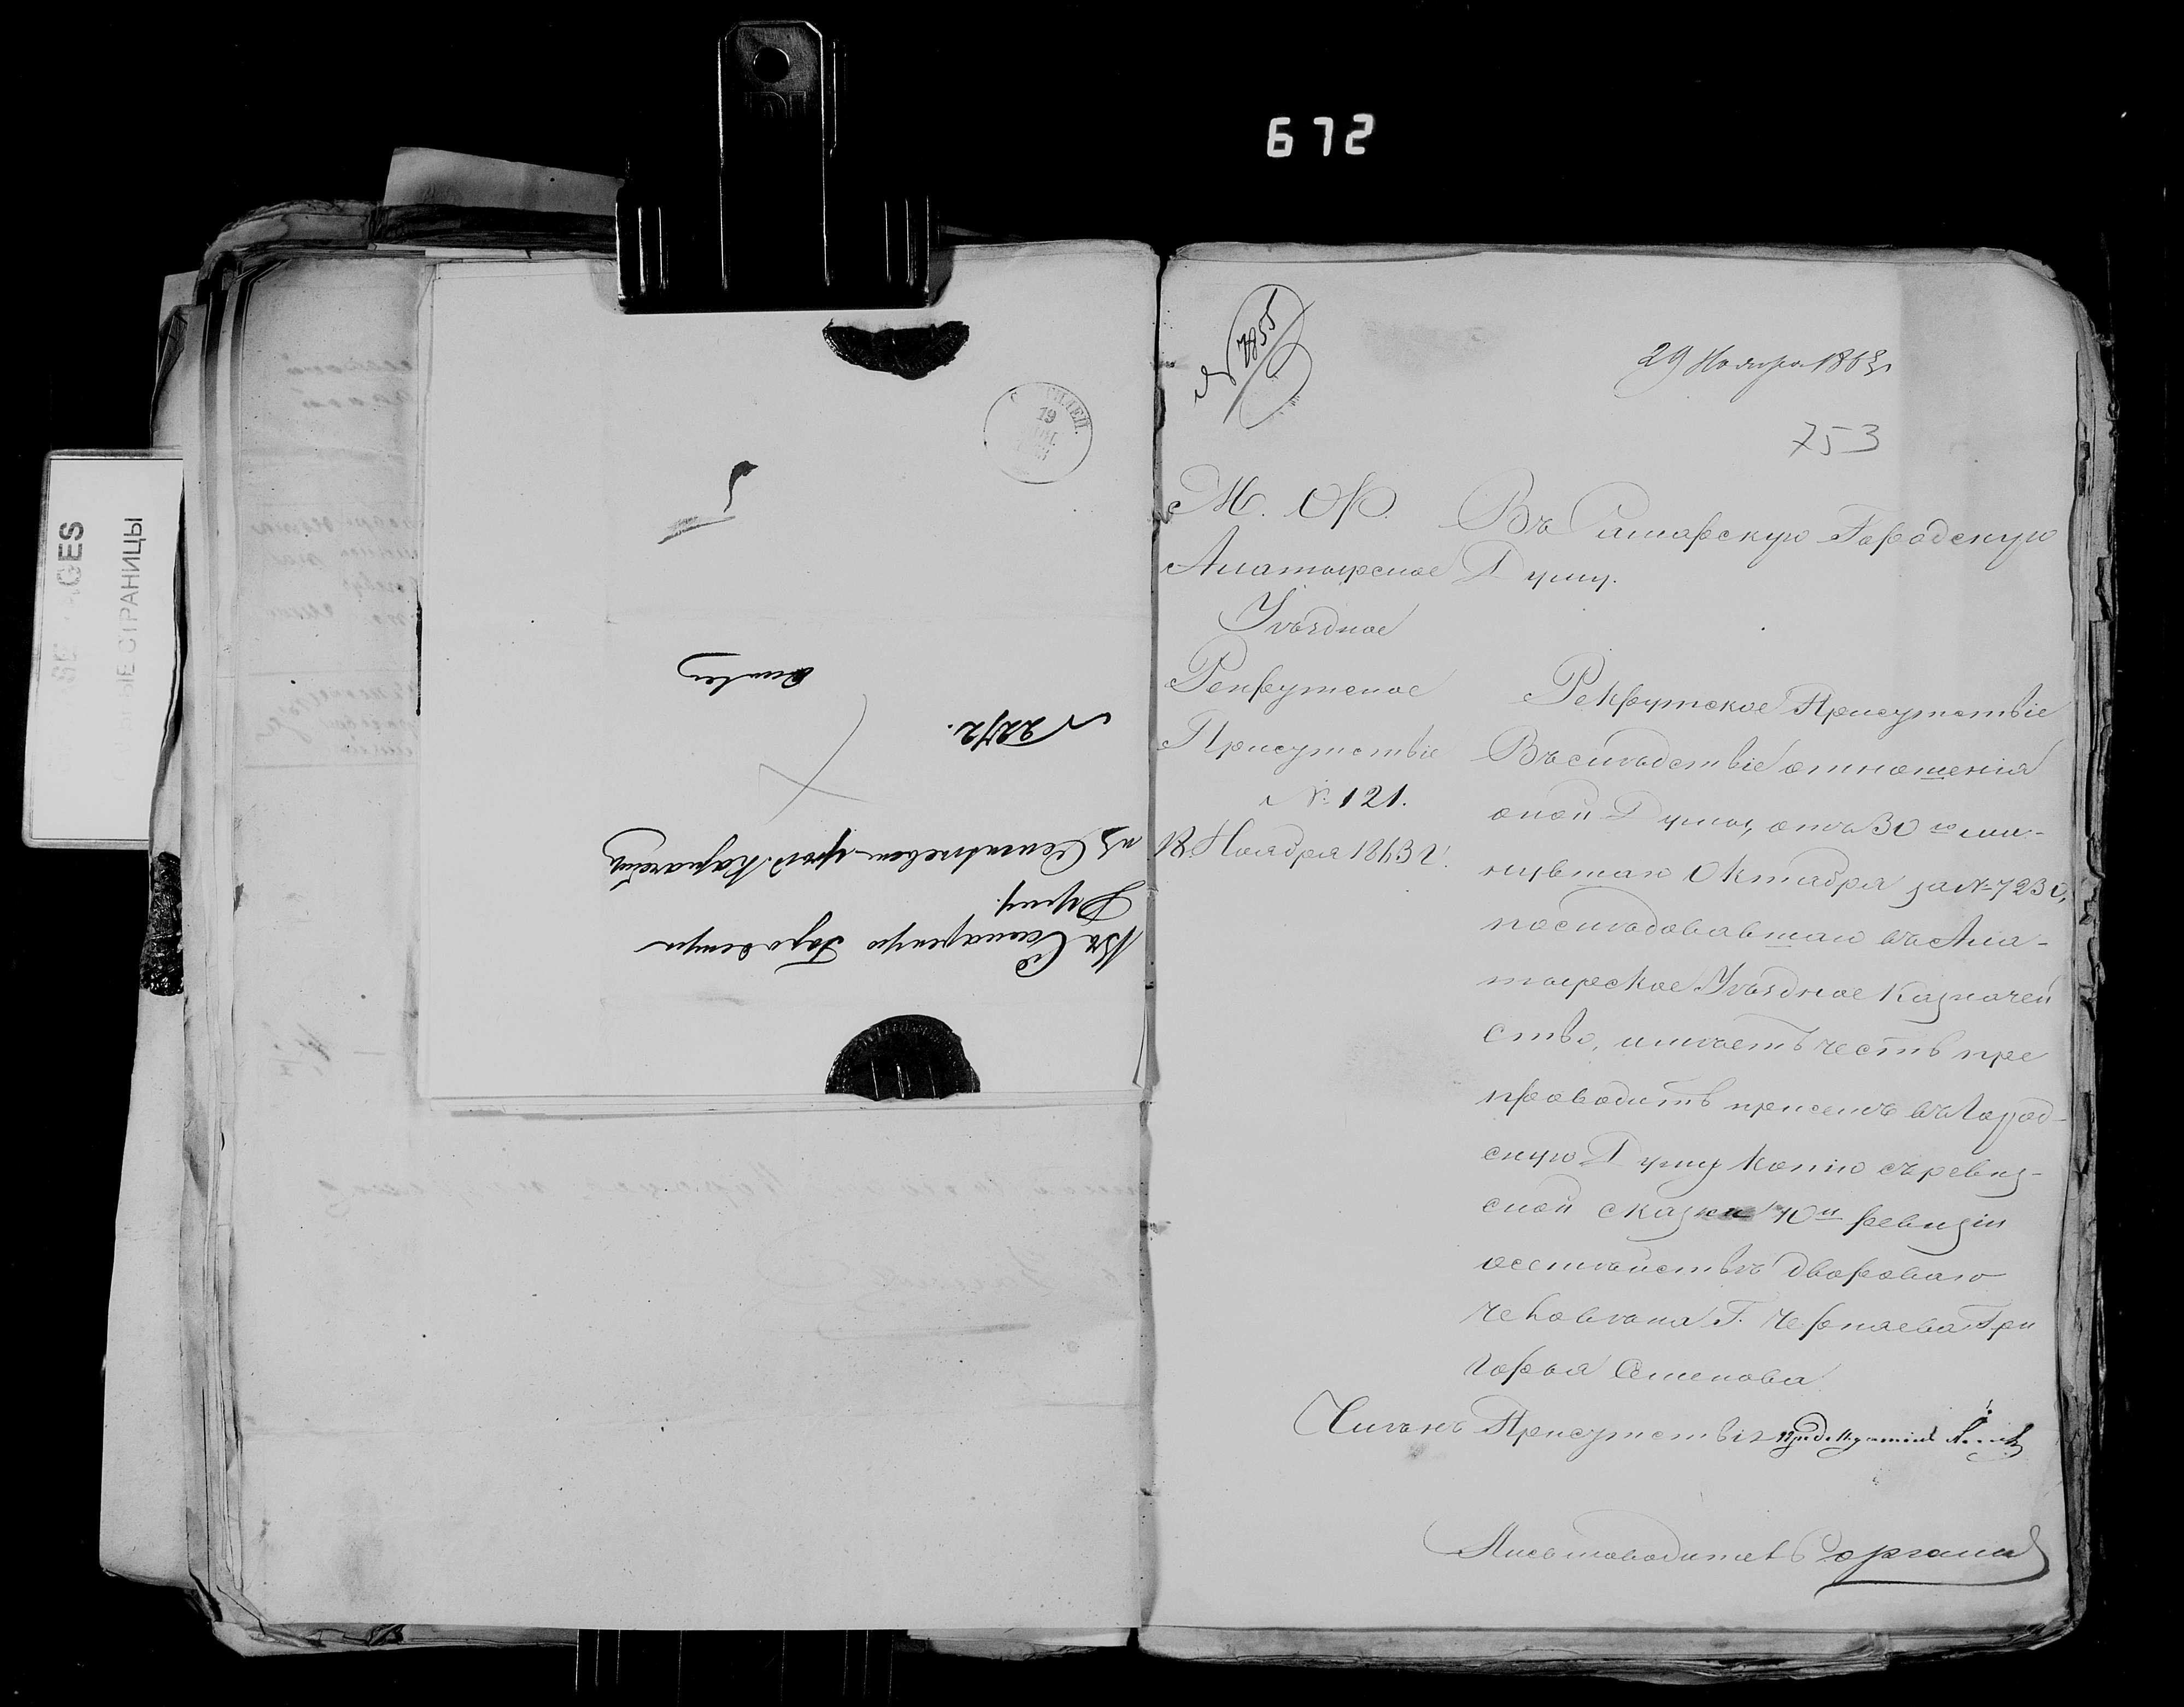 672
GES
ЫЕ СТРАНИЦЫ
19
Въ Самарскую Городскую
Думу.
изъ Сенгилеев. уезд. Казначейства
N 2272.
№ 7855
29 Ноября 1863
753
М. Ф.
Алатырское
Уѣздное
Рекрутское
Присутствіе
№ 121.
18 Ноября 1863 г.
Въ Самарскую Городскую
Думу.
Рекрутское Присутствіе
Въ слѣдствіе отношенія
оной Думы, отъ 30го ми-
нувшаго Октября за № 7230,
послѣдовавшаго въ Ала-
тырское Уѣздное Казначей
ство, имѣетъ честь пре
проводить присемъ въ Город-
скую Думу копію съ ревиз-
ской сказки 10й ревизіи
о семѣйствѣ двороваго
человѣка Г. Черняева Гри
горья Семенова
Членъ Присутствія
Письмоводитель